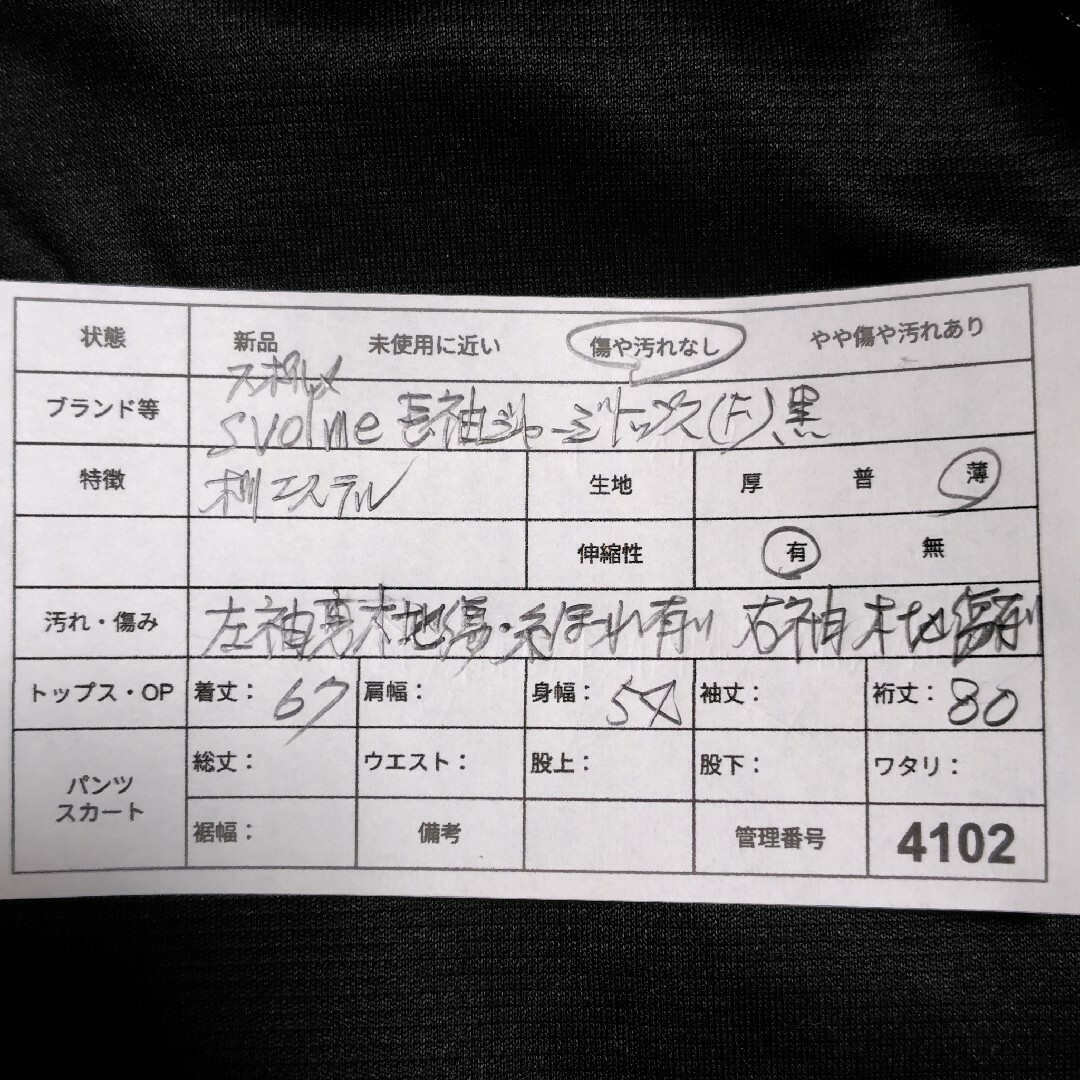 状態 新品 未使用に近い 傷や汚れなし やや傷や汚れあり
スボルメ
ブランド等 svolme 長袖ジャージトップス(F)、黒
特徴 ポリエステル 生地 厚 普 薄
伸縮性 有 無
汚れ・傷み 左袖裏木地傷・糸ほつれ有り 右袖木地傷有り
トップス・OP 着丈: 67 肩幅: 身幅: 54 袖丈: 裄丈: 80
パンツ スカート 総丈: ウエスト: 股上: 股下: ワタリ:
裾幅: 備考 管理番号 4102